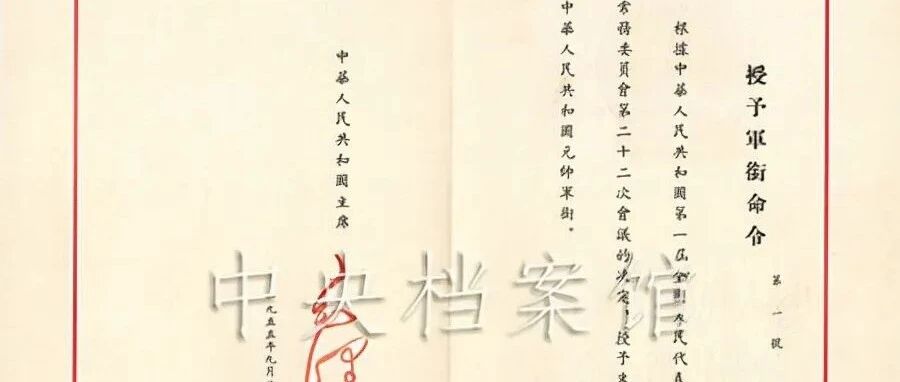 授予軍銜命令
第一號
根據中華人民共和國第一届全國人民代表
常務委員會第二十二次會議的决定，授予
中華人民共和國元帥軍銜。
中華人民共和國主席
毛澤
一九五五年九月
中央档案馆